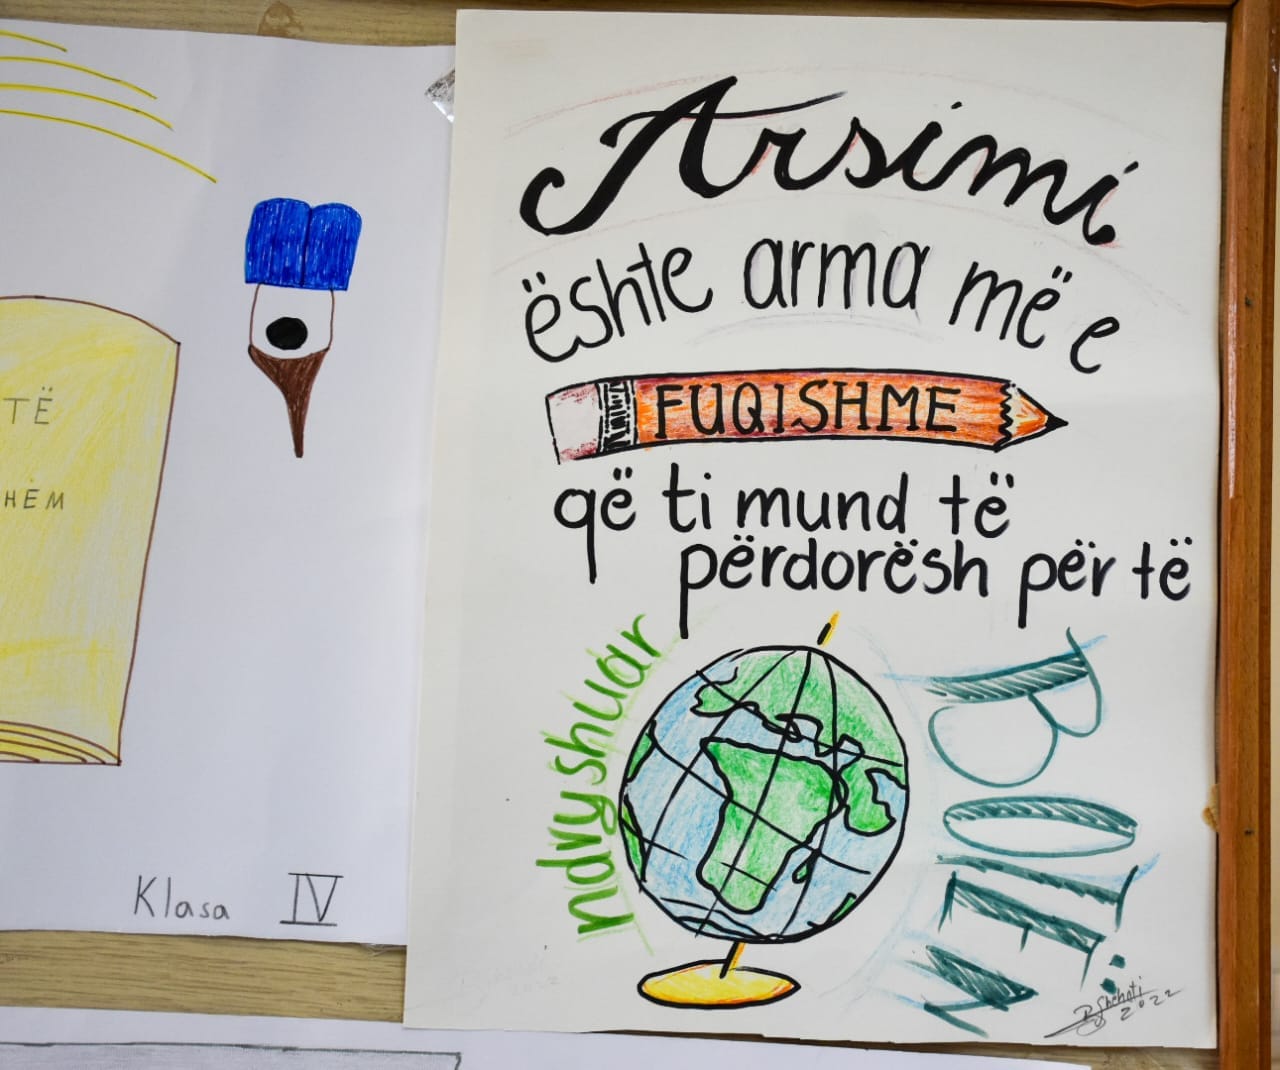 TË
HEM
Klasa IV
Arsimi
ështe arma më e
FUQISHME
që ti mund të
përdorësh për të
ndryshuar
BOTËN
2022